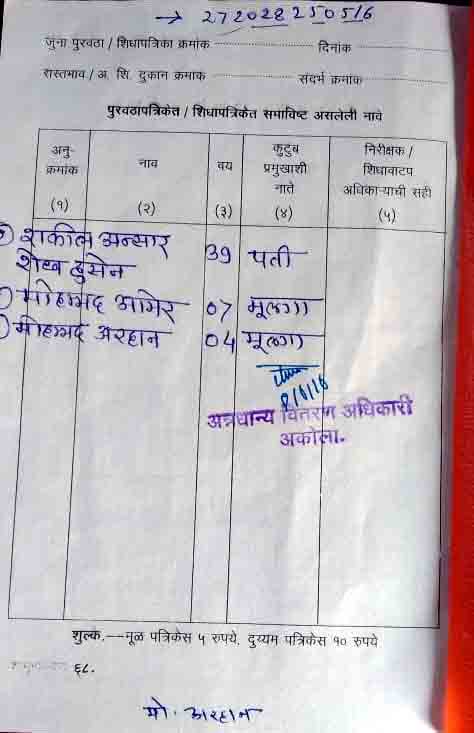 → 272028250516
जुना पुरवठा / शिधापत्रिका क्रमांक दिनांक
रास्तभाव / अ. शि. दुकान क्रमांक संदर्भ क्रमांक
पुरवठापत्रिकेत / शिधापत्रिकेत समाविष्ट असलेली नावे
अनु-क्रमांक नाव वय कुटुंब प्रमुखाशी नाते निरीक्षक / शिधावाटप अधिकाऱ्याची सही
(१) (२) (३) (४) (५)
शकील अन्सार 39 पती
शेख हुसेन
मोहम्मद आमेर 07 मूलगा
मोहम्मद अरहान 04 मूलगा
अन्नधान्य वितरण अधिकारी
अकोला.
शुल्क.--मूळ पत्रिकेस ५ रुपये, दुय्यम पत्रिकेस १० रुपये
६८.
मो. अरहान